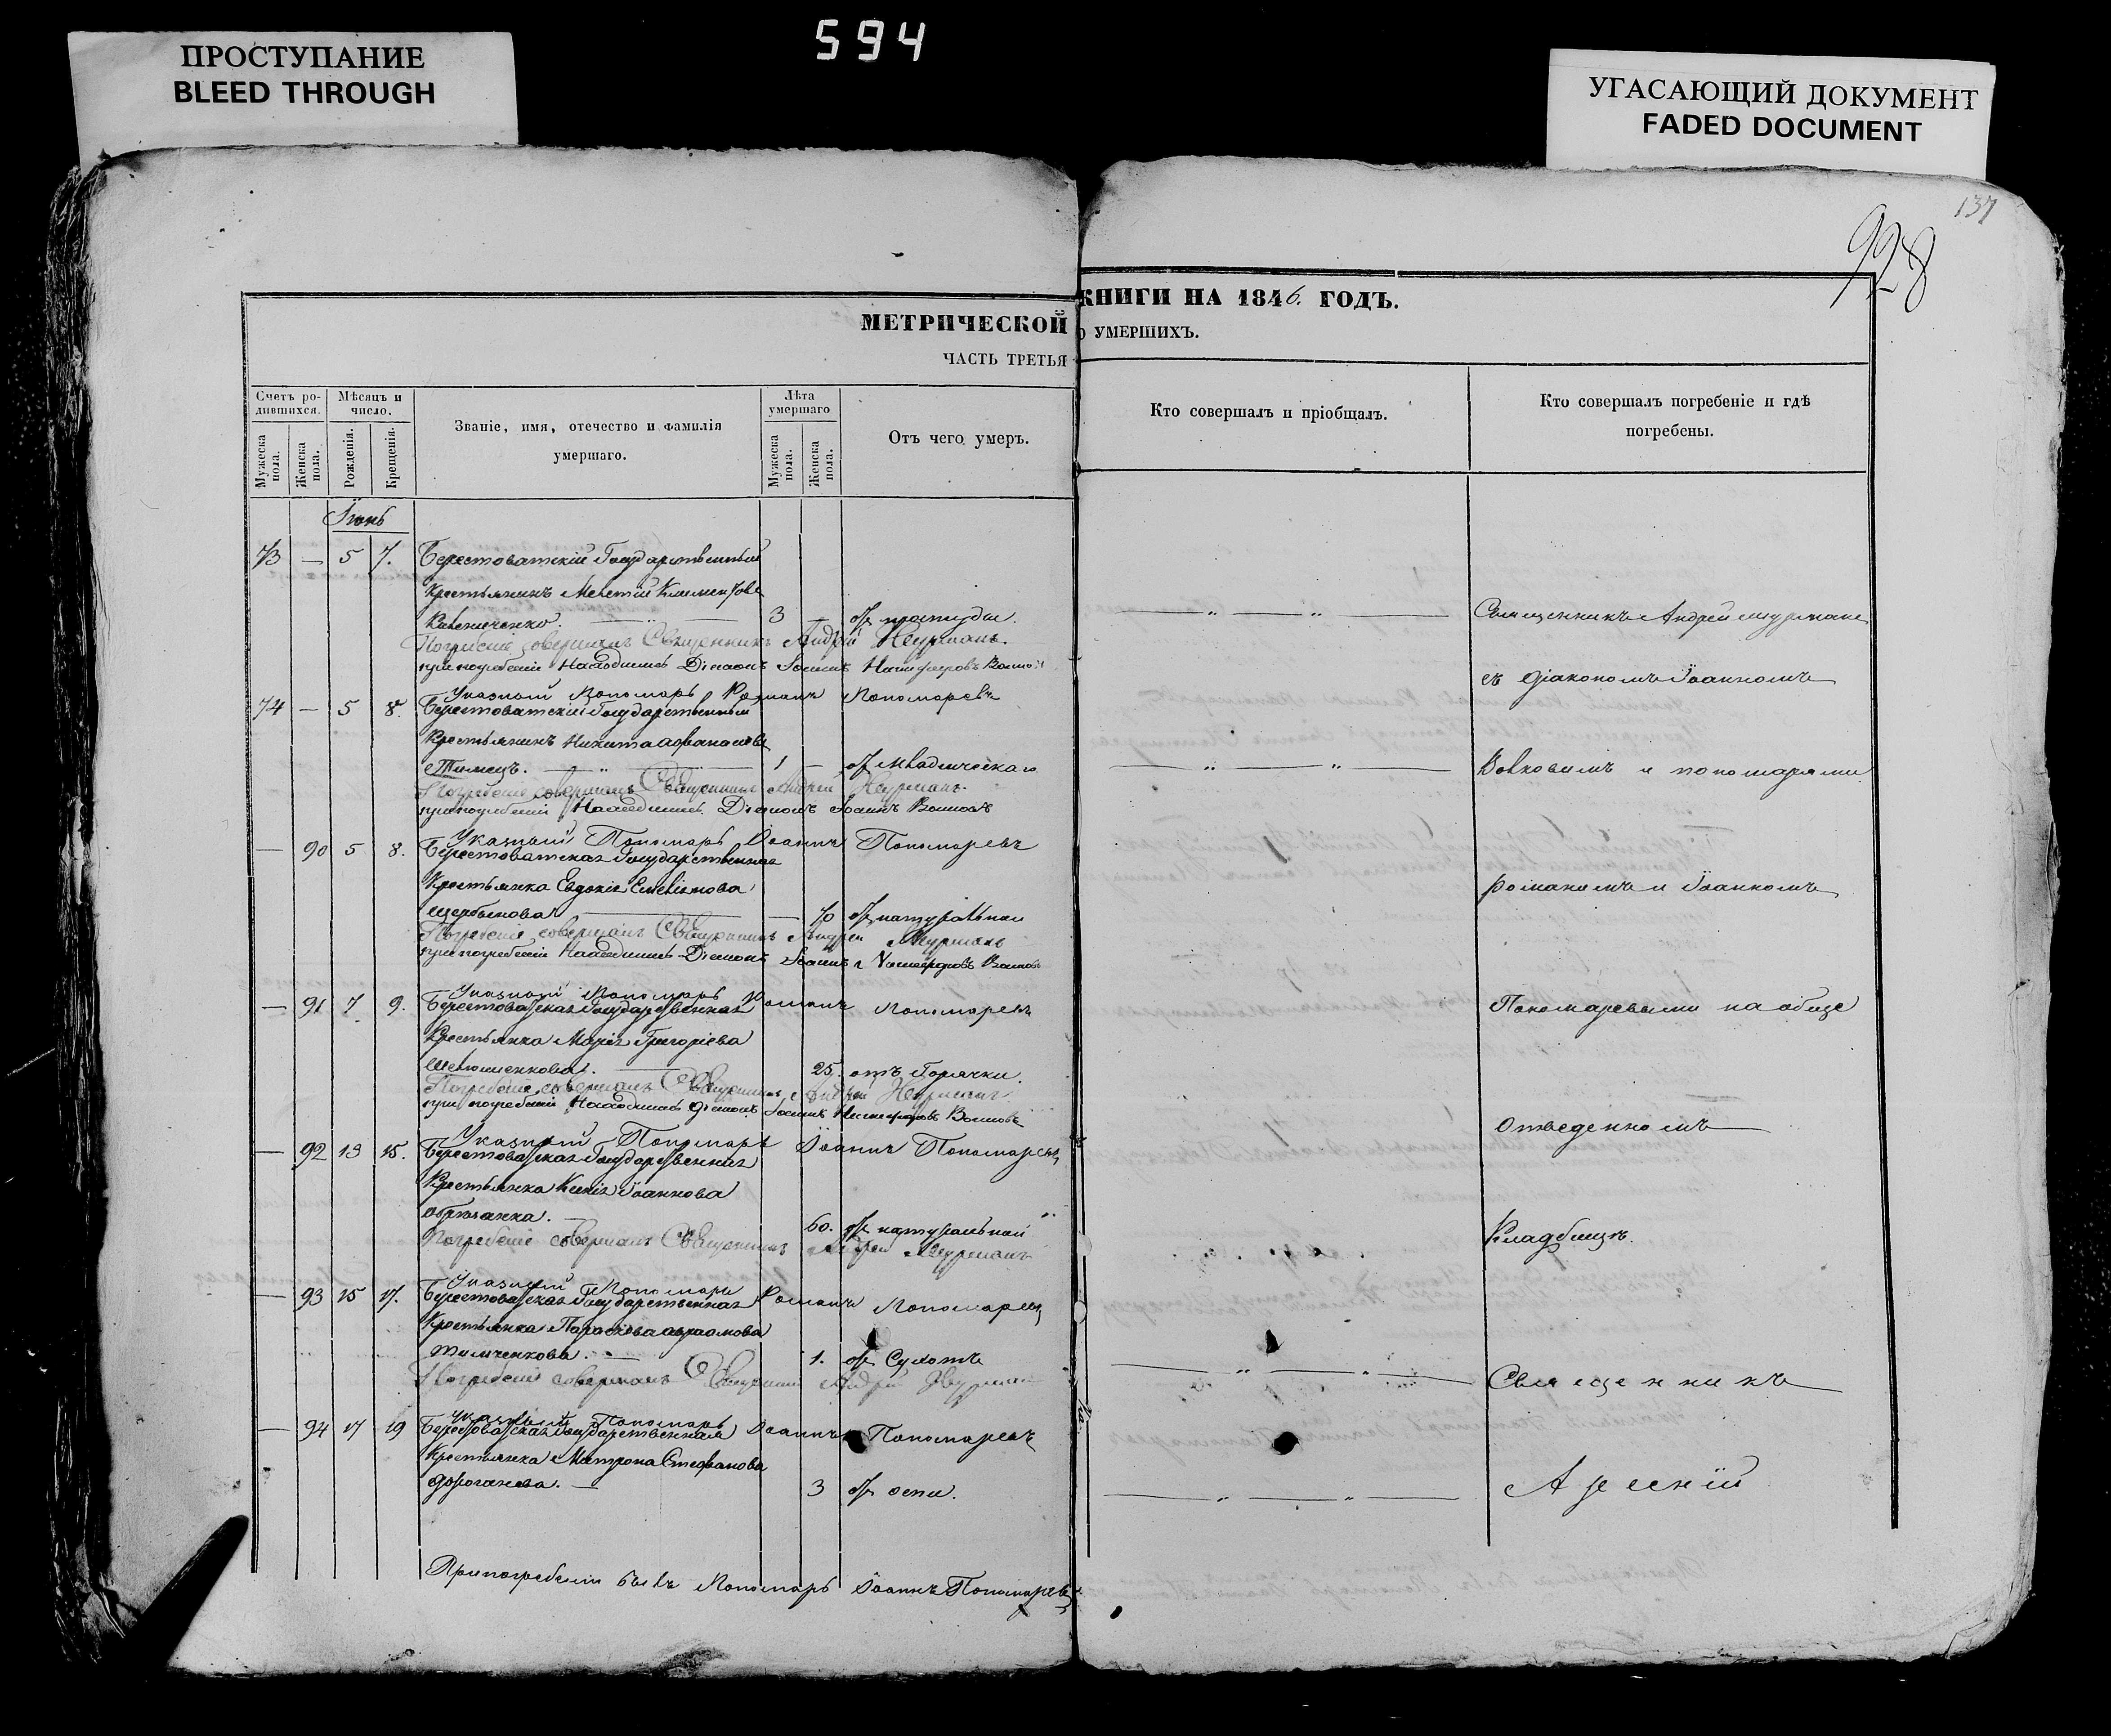 594
ПРОСТУПАНИЕ
BLEED THROUGH
УГАСАЮЩИЙ ДОКУМЕНТ
FADED DOCUMENT
137
928
МЕТРИЧЕСКОЙ КНИГИ НА 1846. ГОДЪ.
ЧАСТЬ ТРЕТЬЯ О УМЕРШИХЪ.
Счетъ родившихся.
Мѣсяцъ и число.
Званіе, имя, отечество и фамилія умершаго.
Лѣта умершаго
Отъ чего умеръ.
Кто совершалъ и пріобщалъ.
Кто совершалъ погребеніе и гдѣ погребены.
Мужеска пола.
Женска пола.
Рожденія.
Крещенія.
Мужеска пола.
Женска пола.
Іюнь
73 — 5 7. Берестоватскій Государственный
Крестьянинъ Мелетій Климентовъ
3 — отъ простуды. Священникъ Андрей Мурманъ
Погребеніе совершалъ Священникъ Андрей Мурманъ.
при погребеніи Находились Діаконъ Іоаннъ
съ Діакономъ Іоанномъ
Указный Пономарь Романъ Пономаревъ
74 — 5 8. Берестоватскій Государственный
Крестьянинъ Никита Афанасіевъ
1 — отъ Волковымъ и пономарями
Погребеніе совершалъ Священникъ Андрей Мурманъ
при погребеніи Находились Діаконъ Іоаннъ
Указный Пономарь Іоаннъ Пономаревъ
— 90 5 8. Берестоватская Государственная
Крестьянка Евдокія Емеліянова
Романомъ и Іоанномъ
Щербакова — 70 отъ натуральной
Погребеніе совершалъ Священникъ Андрей Мурманъ
при погребеніи Находились Діаконъ Іоаннъ
Указный Пономарь Романъ Пономаревъ
— 91 7 9. Берестоватская Государственная
Пономаревыми на обще
Крестьянка Марія Григоріева
25. отъ Горячки.
Погребеніе совершалъ Священникъ Андрей Мурманъ
при погребеніи Находились Діаконъ Іоаннъ
Отведенномъ
Указный Пономарь Іоаннъ Пономаревъ
— 92 13 15. Берестоватская Государственная
Крестьянка Ксенія Іоаннова
60. отъ натуральной
Кладбищѣ.
Погребеніе совершалъ Священникъ Андрей Мурманъ
Указный Пономарь Романъ Пономаревъ
— 93 15 17. Берестоватская Государственная
Крестьянка Параскева Авраамова
Тимченкова. — 1. отъ Сухотъ
Священникъ
Погребеніе совершалъ Священникъ Андрей Мурманъ
Указный Пономарь Іоаннъ Пономаревъ
— 94 17 19 Берестоватская Государственная
Крестьянка Матрона Стефанова
3 отъ оспы.
При погребеніи былъ Пономарь Іоаннъ Пономаревъ